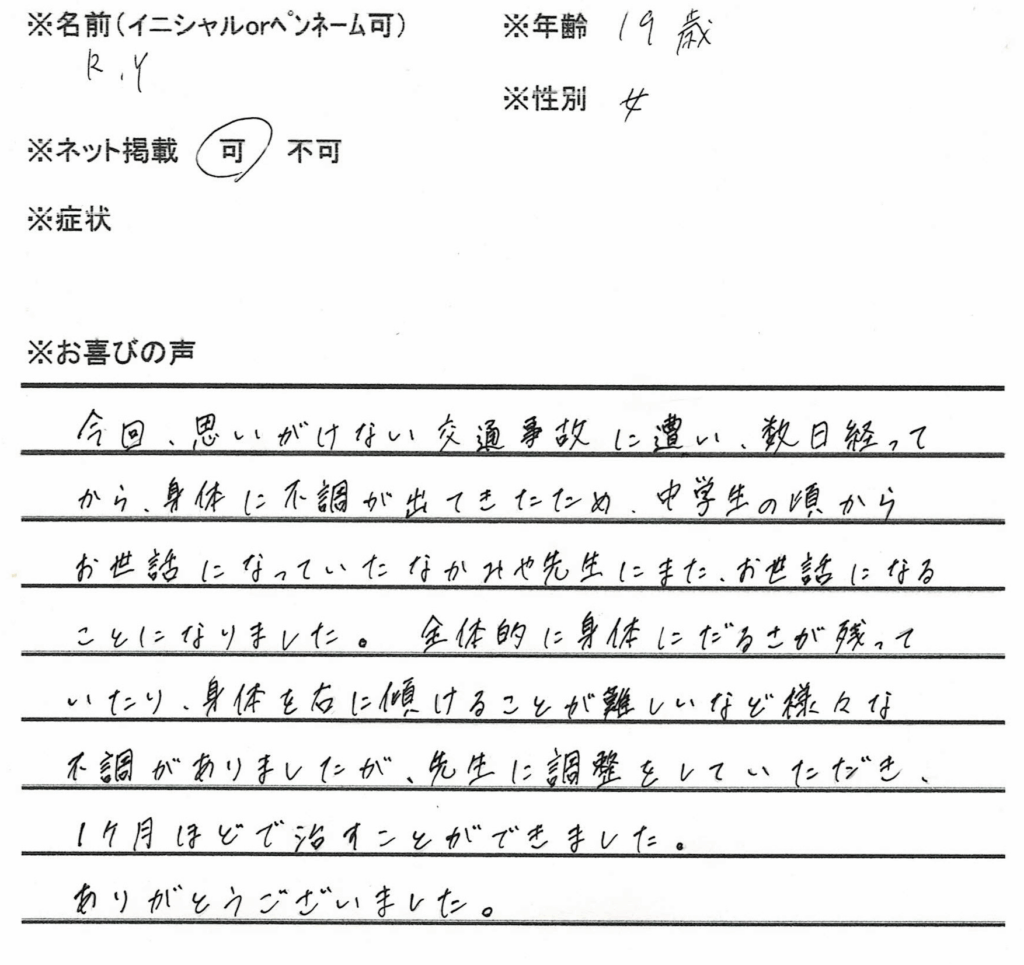 ※名前(イニシャルorペンネーム可)
R.Y
※年齢 19歳
※性別 女
※ネット掲載 可 不可
※症状
※お喜びの声
今回、思いがけない交通事故に遭い、数日経って
から、身体に不調が出てきたため、中学生の頃から
お世話になっていたなかみや先生にまた、お世話になる
ことになりました。 全体的に身体にだるさが残って
いたり、身体を右に傾けることが難しいなど様々な
不調がありましたが、先生に調整をしていただき、
1ケ月ほどで治すことができました。
ありがとうございました。